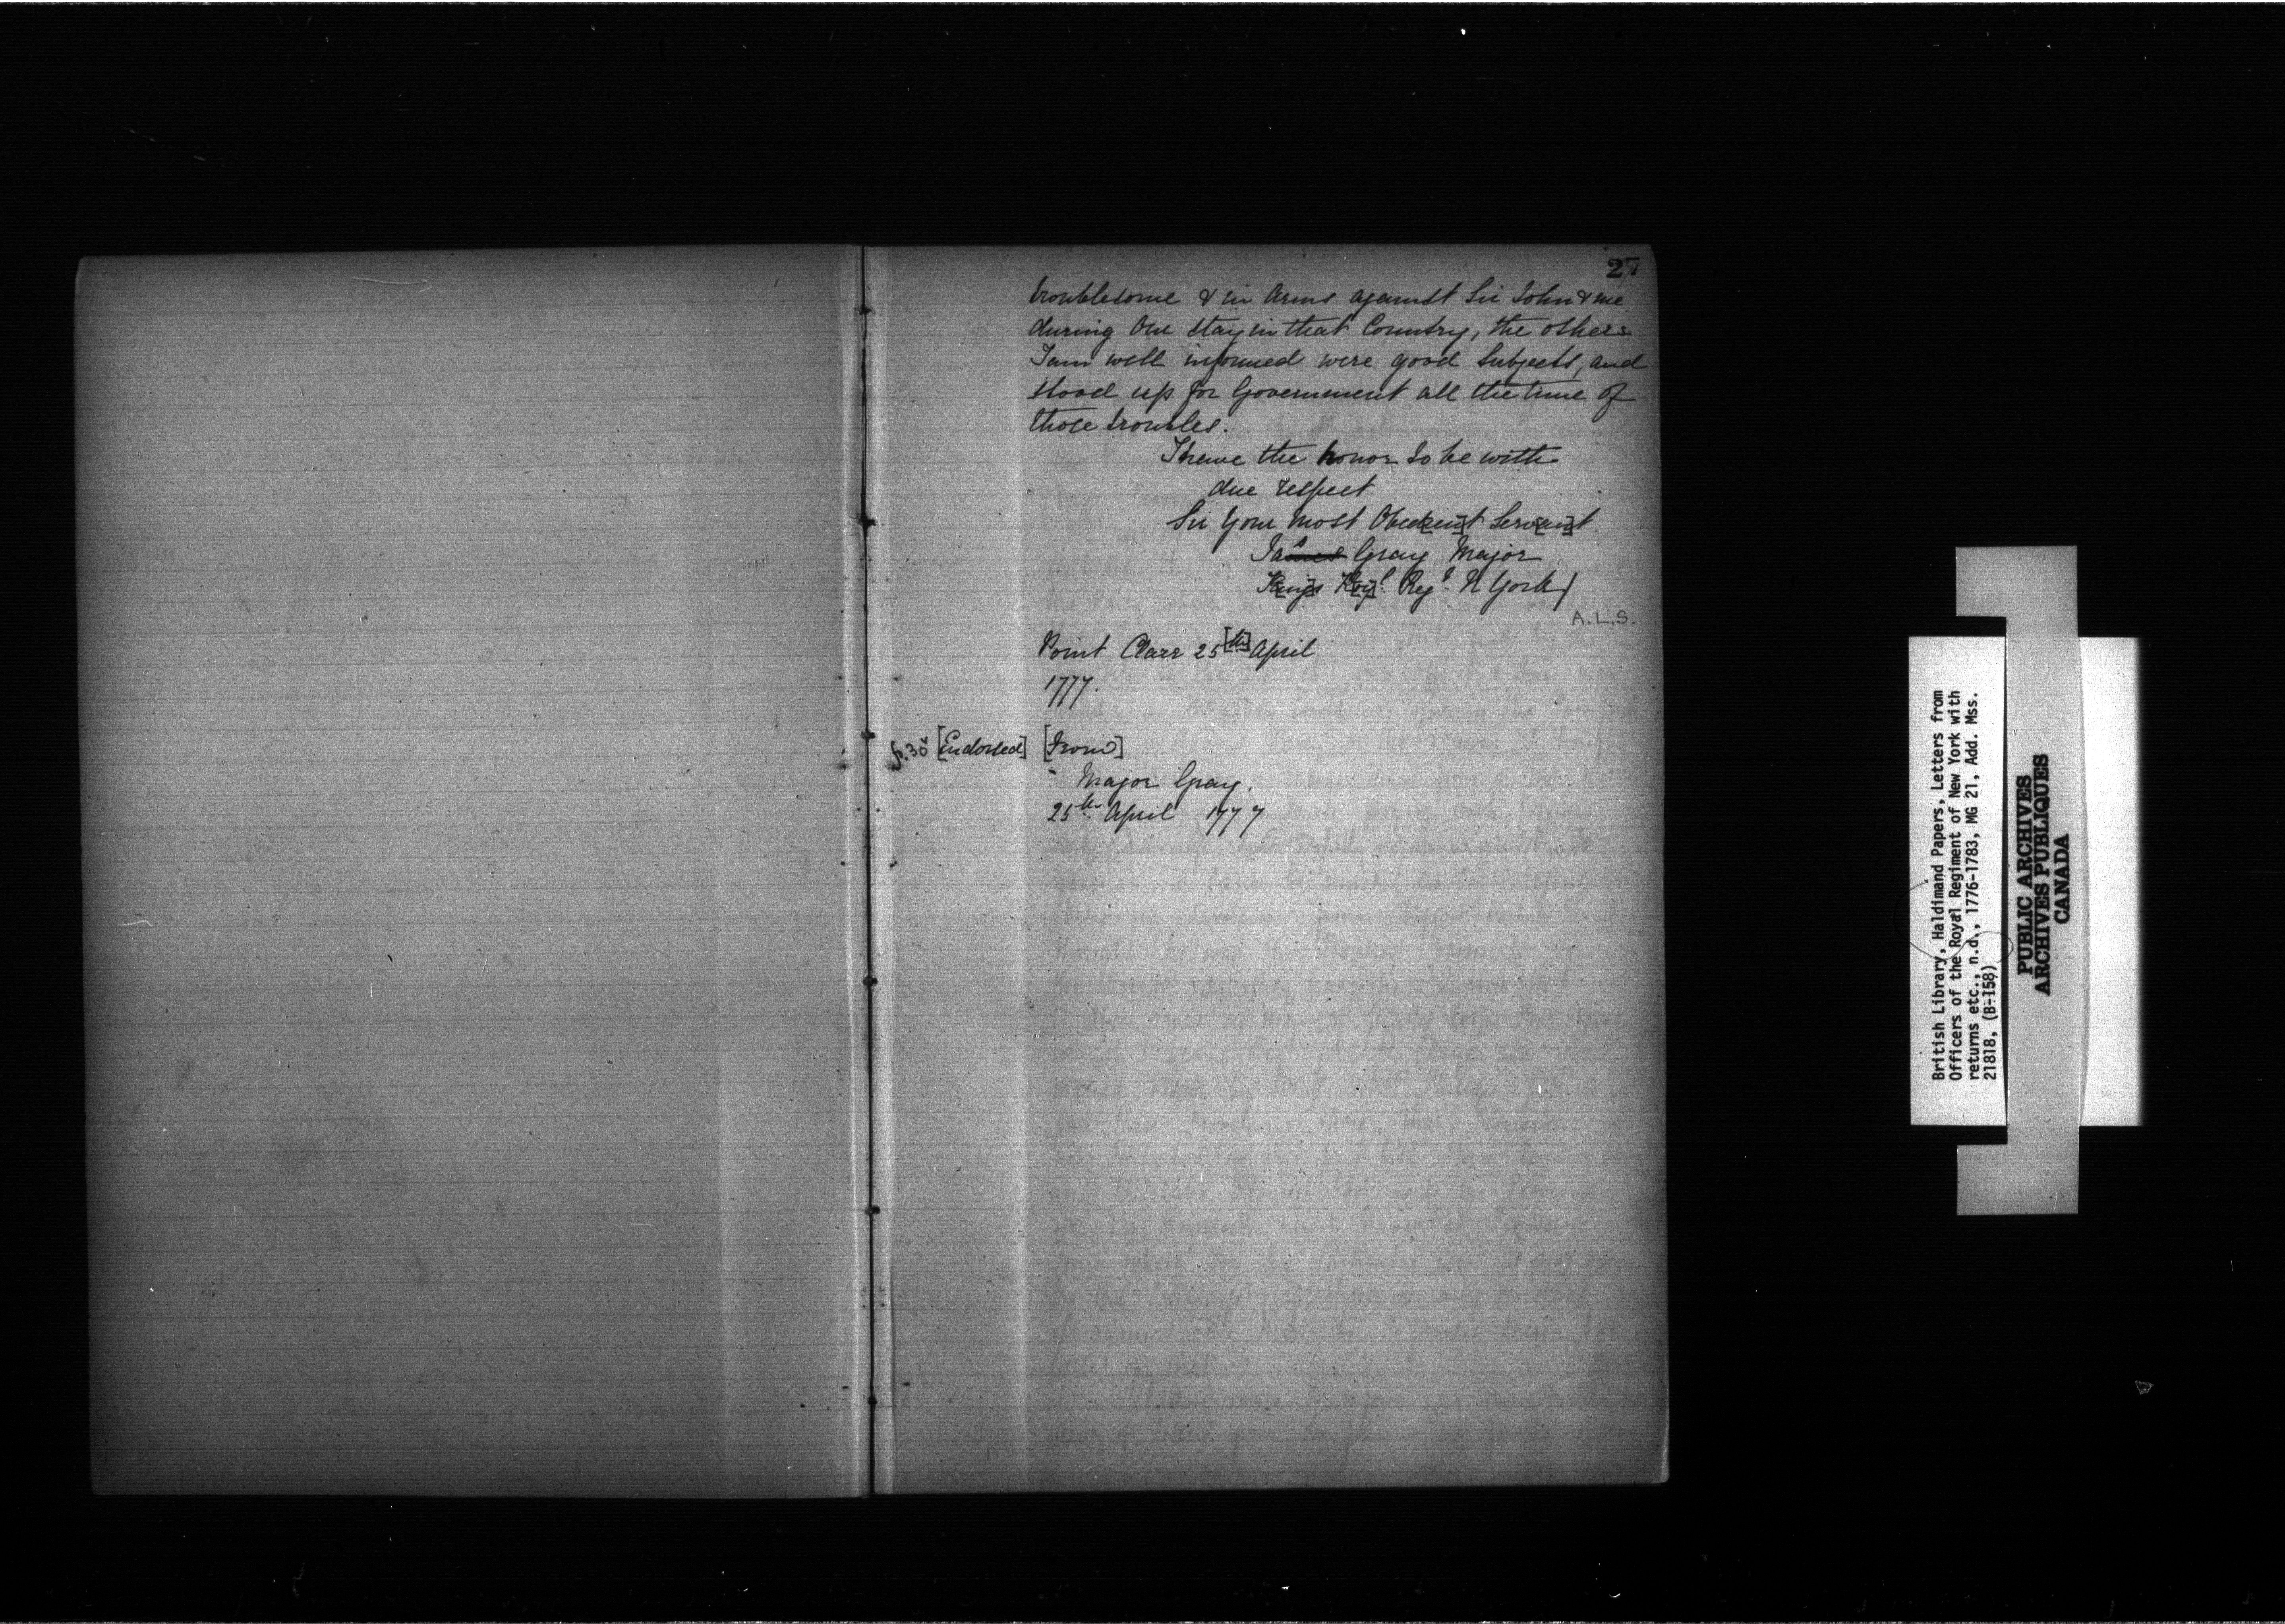 27
troublesome & in Arms against Sir John & me
during Our Stay in that Country, the others
I am well informed were good Subjects, and
stood up for Government all the time of
those troubles.
I have the honor to be with
due respect
Sir Your most Obed[ien]t Serv[an]t
Jas Gray Major
K[ing]s R[oy]l Regt N York
A.L.S.
Point Clare 25[th] April
1777.
p. 30 [Endorsed] [From]
Major Gray.
25th April 1777
British Library, Haldimand Papers, Letters from
Officers of the Royal Regiment of New York with
returns etc., n.d., 1776-1783, MG 21, Add. Mss.
21818, (B-158)
PUBLIC ARCHIVES
ARCHIVES PUBLIQUES
CANADA